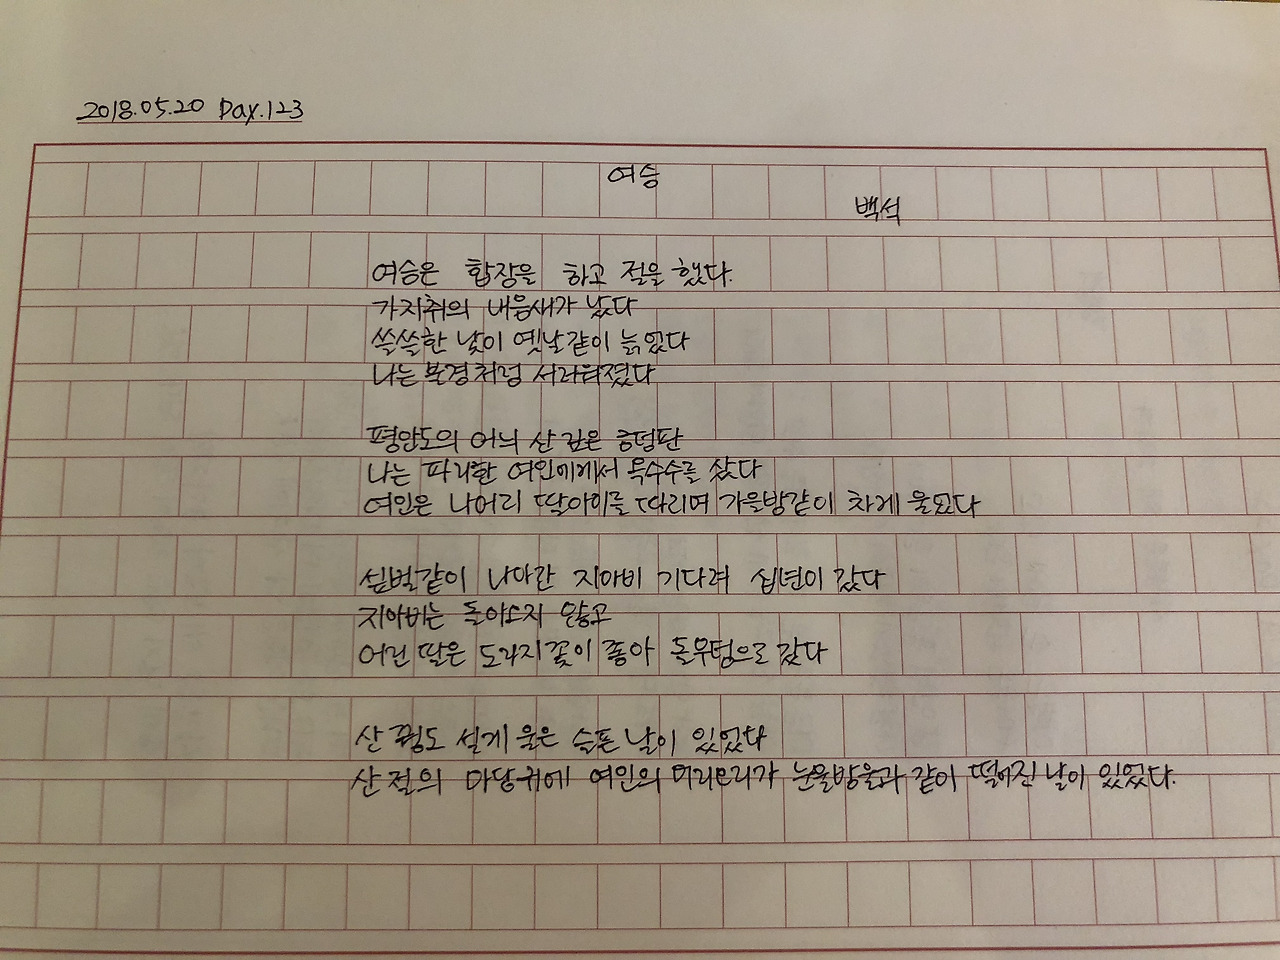 2018.05.20 Day.123
여승
백석
여승은 합장을 하고 절을 했다.
가지취의 내음새가 났다
쓸쓸한 낯이 옛날같이 늙었다
나는 불경처럼 서러워졌다
평안도의 어늬 산 깊은 금덤판
나는 파리한 여인에게서 옥수수를 샀다
여인은 나어린 딸아이를 따리며 가을밤같이 차게 울었다
섶벌같이 나아간 지아비 기다려 십년이 갔다
지아비는 돌아오지 않고
어린 딸은 도라지꽃이 좋아 돌무덤으로 갔다
산 꿩도 설게 울은 슬픈 날이 있었다
산 절의 마당귀에 여인의 머리오리가 눈물방울과 같이 떨어진 날이 있었다.